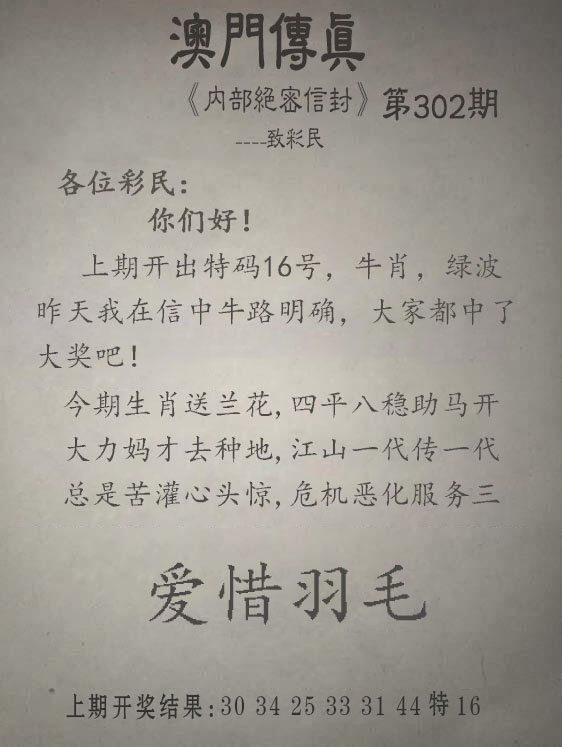 澳門傳眞
《内部絕密信封》第302期
----致彩民
各位彩民：
你们好！
上期开出特码16号，牛肖，绿波
昨天我在信中牛路明确，大家都中了
大奖吧！
今期生肖送兰花,四平八稳助马开
大力妈才去种地,江山一代传一代
总是苦灌心头惊,危机恶化服务三
爱惜羽毛
上期开奖结果:30 34 25 33 31 44 特 16